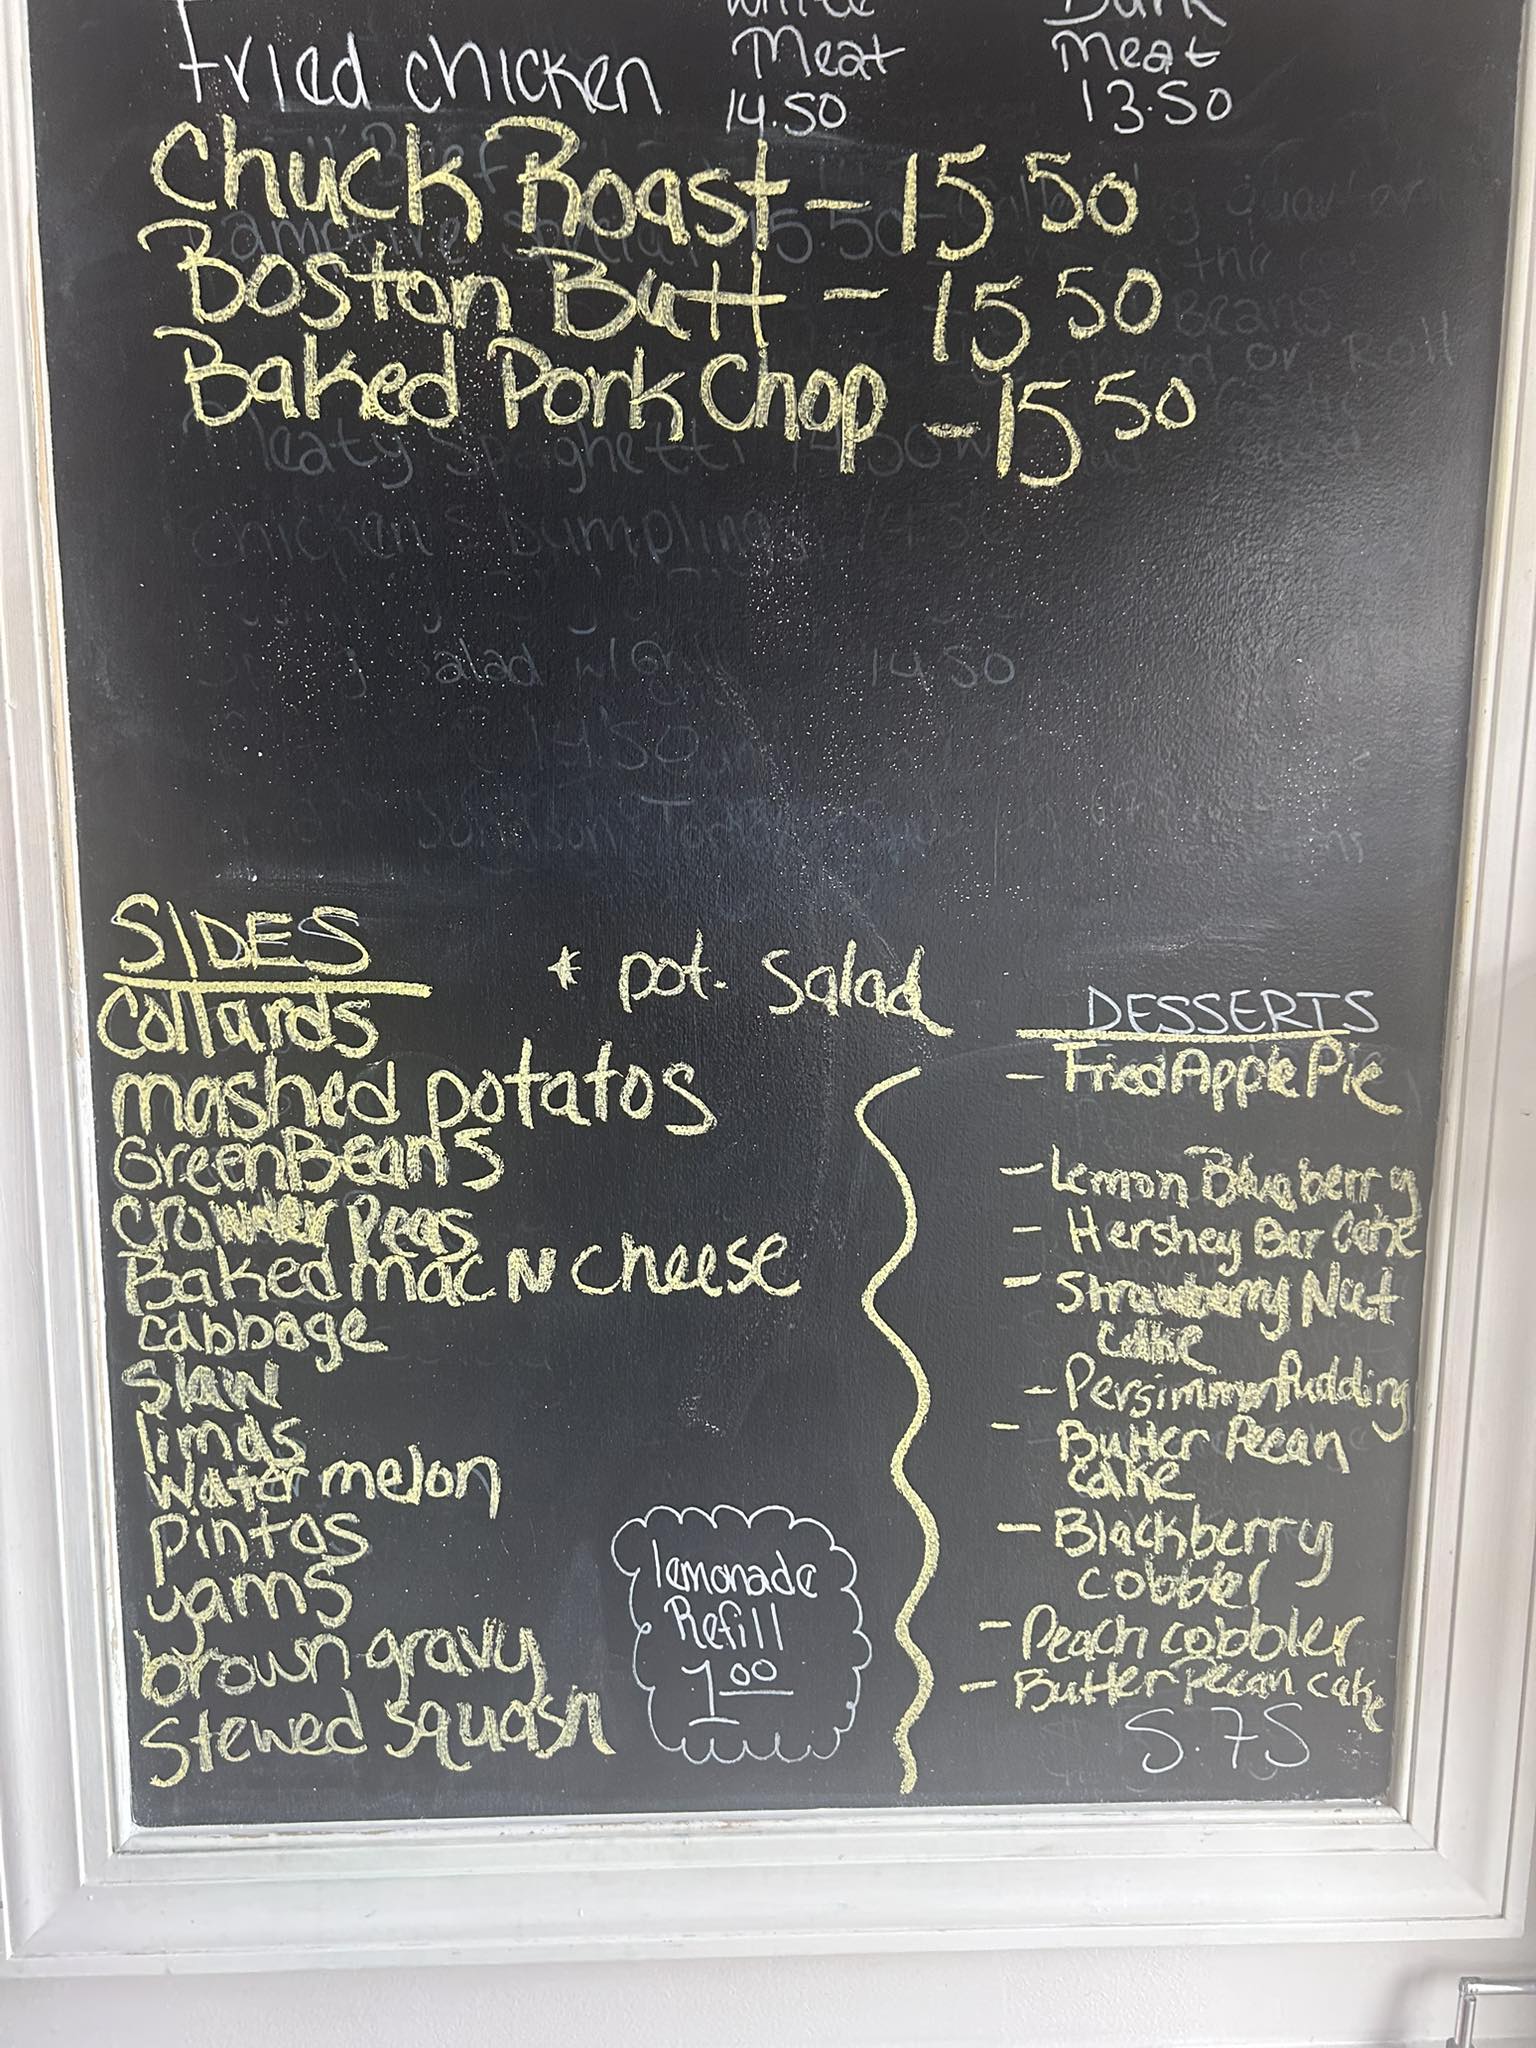 Fried chicken White Meat 14.50 Dark Meat 13.50
Chuck Roast - 15 50
Boston Butt - 15 50
Baked Pork Chop - 15 50
Meaty Spaghetti
chicken & Dumplings 14.50
Salad w/ 14.50
14.50
Johnson
SIDES
* pot. Salad
Collards
mashed potatos
GreenBeans
crowder Peas
Baked mac N cheese
cabbage
Slaw
limas
Water melon
pintos
yams
brown gravy
Stewed squash
lemonade
Refill
1.00
DESSERTS
- Fried Apple Pie
- Lemon Blueberry
- Hershey Bar Cake
- Strawberry Nut
cake
- Persimmon Pudding
- Butter Pecan
cake
- Blackberry
cobbler
- Peach cobbler
- Butter Pecan cake
5.75